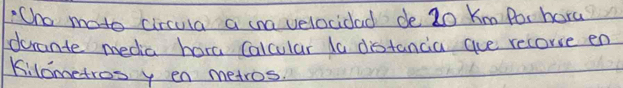 • Una moto circula a una velocidad de 20 Km Por hora
durante media hora Calcular la distancia que recorre en
Kilómetros y en metros.